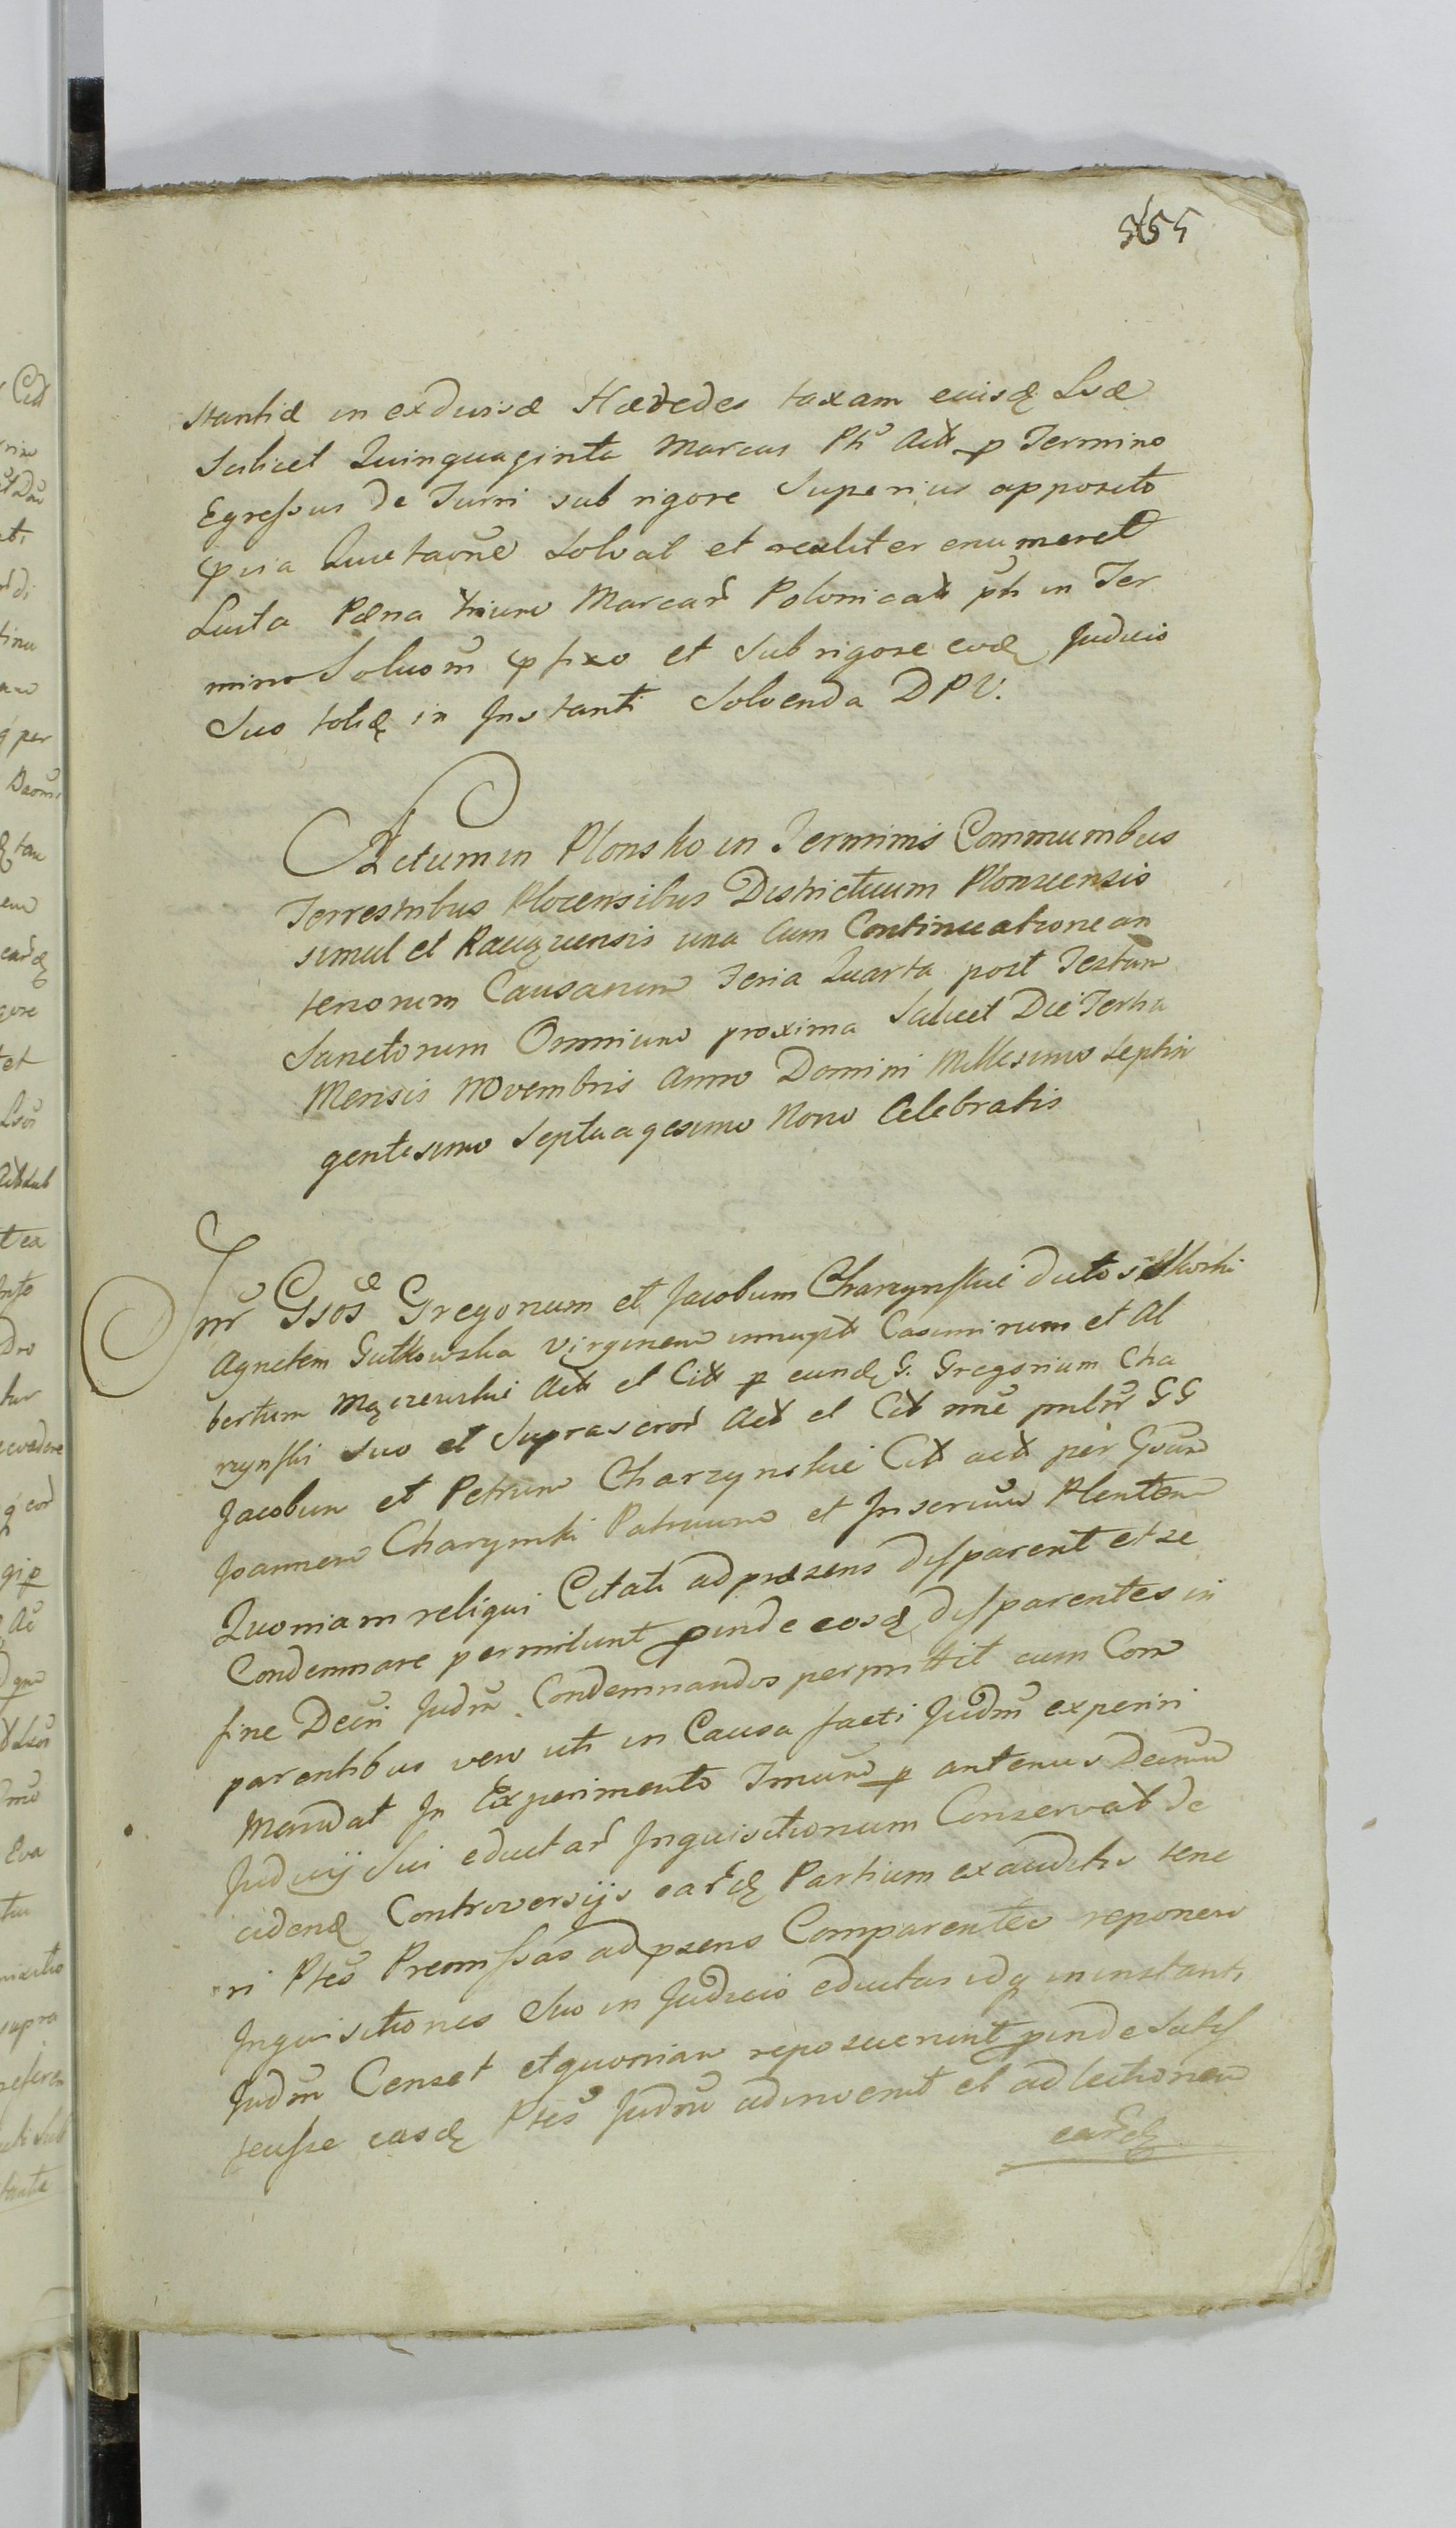 stantiæ in exdivisæ Hæredes taxam eiusdę Lsæ
Scilicet Quinquaginta Marcas Ph Actt p Termino
Egressus de Turri sub rigore Superius apposito
pvia Quietaõne Solvat et realiter enumeret
Luita Pæna trium Marcar Polonicatt ph in Ter
mino Soluoni pfixo et Sub rigore eodę Judicio
Suo tolidę in Instanti Solvenda DPV.
Actum in Plonsko in Terminis Communibus
Terrestribus Plocensibus Districtuum Plonscensis
simul et Raciązensis una Cum Continuatione an
teriorum Causarum Feria Quarta post Festum
Sanctorum Omnium proxima Scilicet Die Tertia
Mensis Novembris Anno Domini Millesimo Septin
gentesimo Septuagesimo Nono Celebratis
Inr Gsos Gregorium et Jacobum Charzynskie
Agnetem Gutkowska Virginem innupt Casimirum et Al
bertum Mączewskie Actt et Citt p eundę G. Gregorium Cha
rzynski suo et Suprascror Actt et Citt nne pnlr GG
Jacobum et Petrum Charzynskie Citt actt per Gsum
Joannem Charzynski Patruum et Inscrium Plentem
Quoniam reliqui Citati ad præsens disparent et se
Condemnare permitunt pinde eosdę disparentes in
fine Decri Judm Condemnandos permittit cum Com
parentibus vero uti in Causa facti Judm experiri
Mandat In Experimento Imum p antenus Decrum
Judicij Sui eductar Inquisitionum Conservat de
cidendę Controversijs eardę Partium exauditis tene
ri Ptes Premissas ad psens Comparentes reponere
Inquisitiones Suo in Judicio eductas idq in instanti
Judm Censet et quoniam reposuerunt pinde Satis
fecisse easdę Ptes Judm adinvenit et ad lectionem
eardę